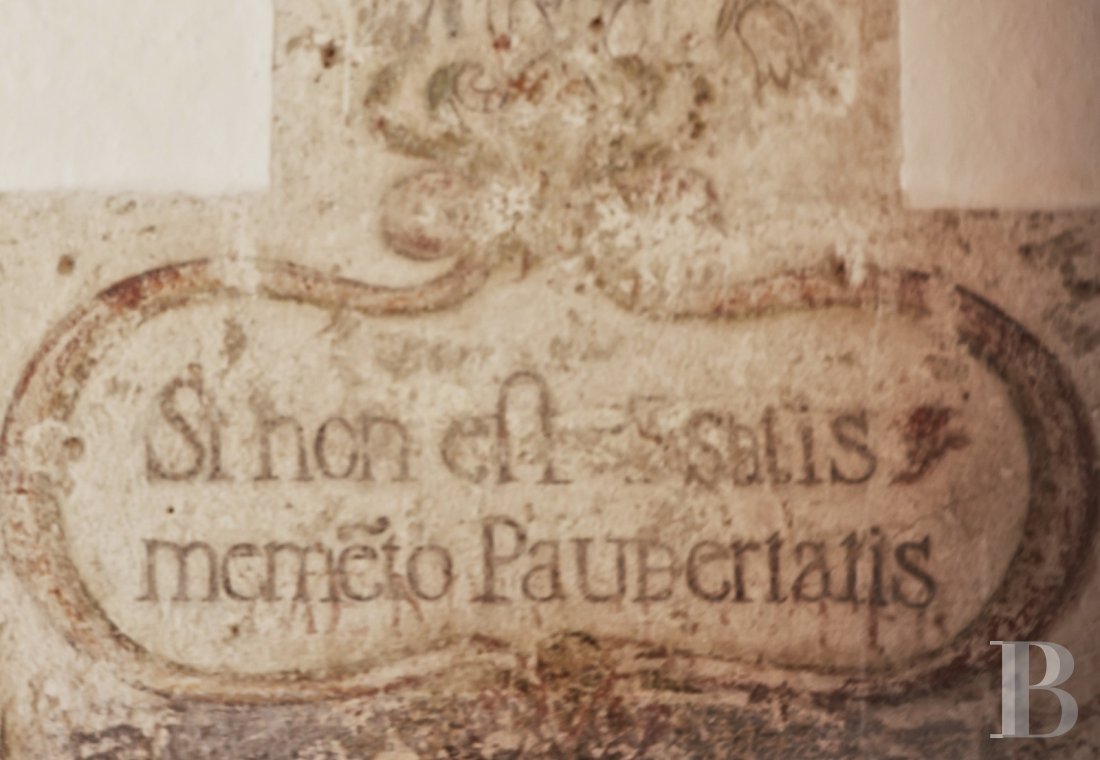 Si non est satis
memẽto Paubertatis
B